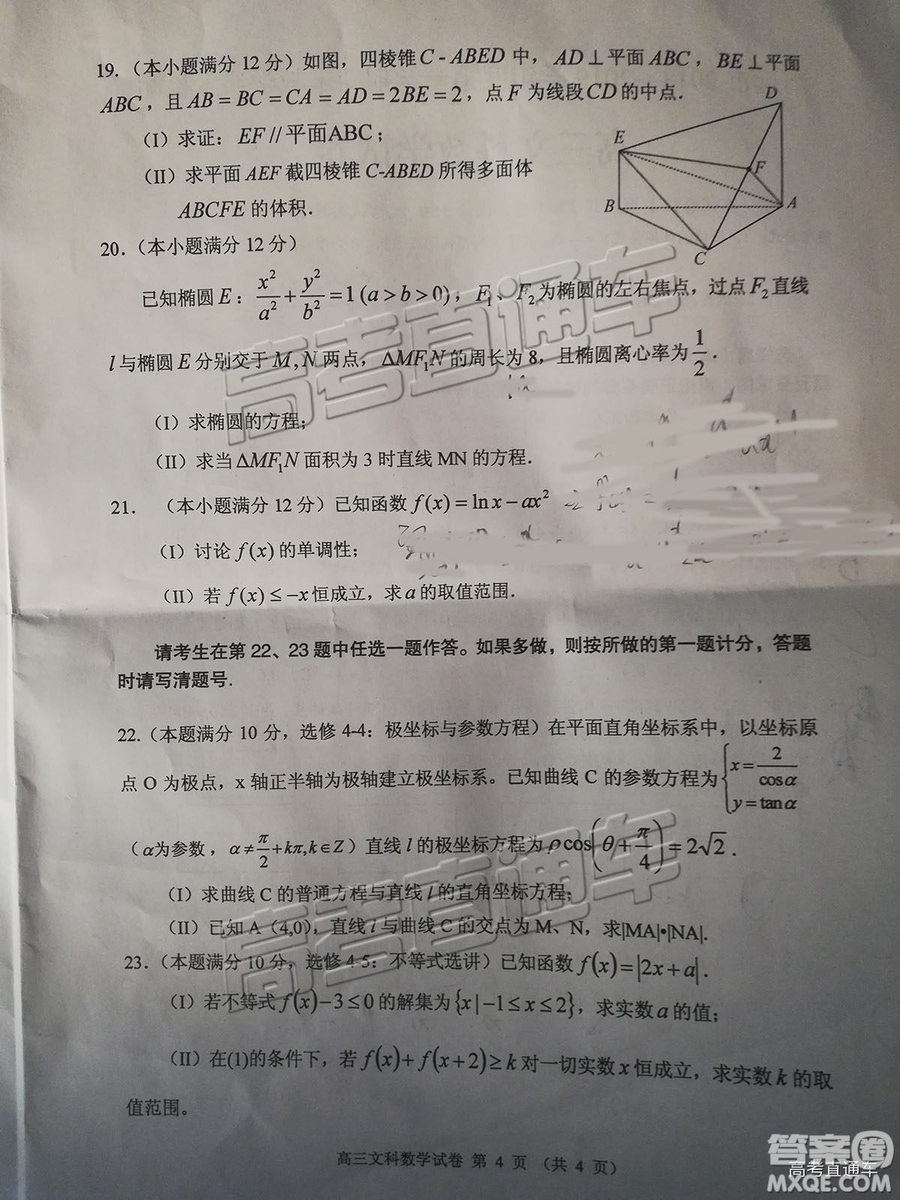 19.（本小题满分 12 分）如图，四棱锥 C - ABED 中， AD ⊥ 平面 ABC ， BE ⊥ 平面
ABC ，且 AB = BC = CA = AD = 2BE = 2 ，点 F 为线段 CD 的中点．
（I）求证： EF // 平面ABC ；
（II）求平面 AEF 截四棱锥 C-ABED 所得多面体
ABCFE 的体积．
D
E
F
B
A
C
20.（本小题满分 12 分）
已知椭圆 E： x²/a² + y²/b² = 1 ( a > b > 0)，F₁、F₂ 为椭圆的左右焦点，过点 F₂ 直线
l 与椭圆 E 分别交于 M , N 两点，ΔMF₁N 的周长为 8，且椭圆离心率为 1/2 ．
（I）求椭圆的方程；
（II）求当 ΔMF₁N 面积为 3 时直线 MN 的方程．
21. （本小题满分 12 分）已知函数 f(x) = ln x − ax²
（I）讨论 f(x) 的单调性；
（II）若 f(x) ≤ −x 恒成立，求 a 的取值范围．
请考生在第 22、23 题中任选一题作答。如果多做，则按所做的第一题计分，答题
时请写清题号．
22.（本题满分 10 分，选修 4-4：极坐标与参数方程）在平面直角坐标系中，以坐标原
点 O 为极点，x 轴正半轴为极轴建立极坐标系。已知曲线 C 的参数方程为 { x = 2/cosα y = tanα
（α为参数， α ≠ π/2 + kπ, k ∈ Z ）直线 l 的极坐标方程为 ρcos(θ + π/4) = 2√2 ．
（I）求曲线 C 的普通方程与直线 l 的直角坐标方程；
（II）已知 A（4,0），直线 l 与曲线 C 的交点为 M、N，求|MA|•|NA|.
23．（本题满分 10 分，选修 4-5：不等式选讲）已知函数 f(x) = |2x + a| ．
（I）若不等式 f(x) − 3 ≤ 0 的解集为 {x | −1 ≤ x ≤ 2}，求实数 a 的值；
（II）在(1)的条件下，若 f(x) + f(x + 2) ≥ k 对一切实数 x 恒成立，求实数 k 的取
值范围。
高三文科数学试卷 第 4 页 （共 4 页）
高考直通车
高考直通车
答案圈
高考直通车
MXQE.COM